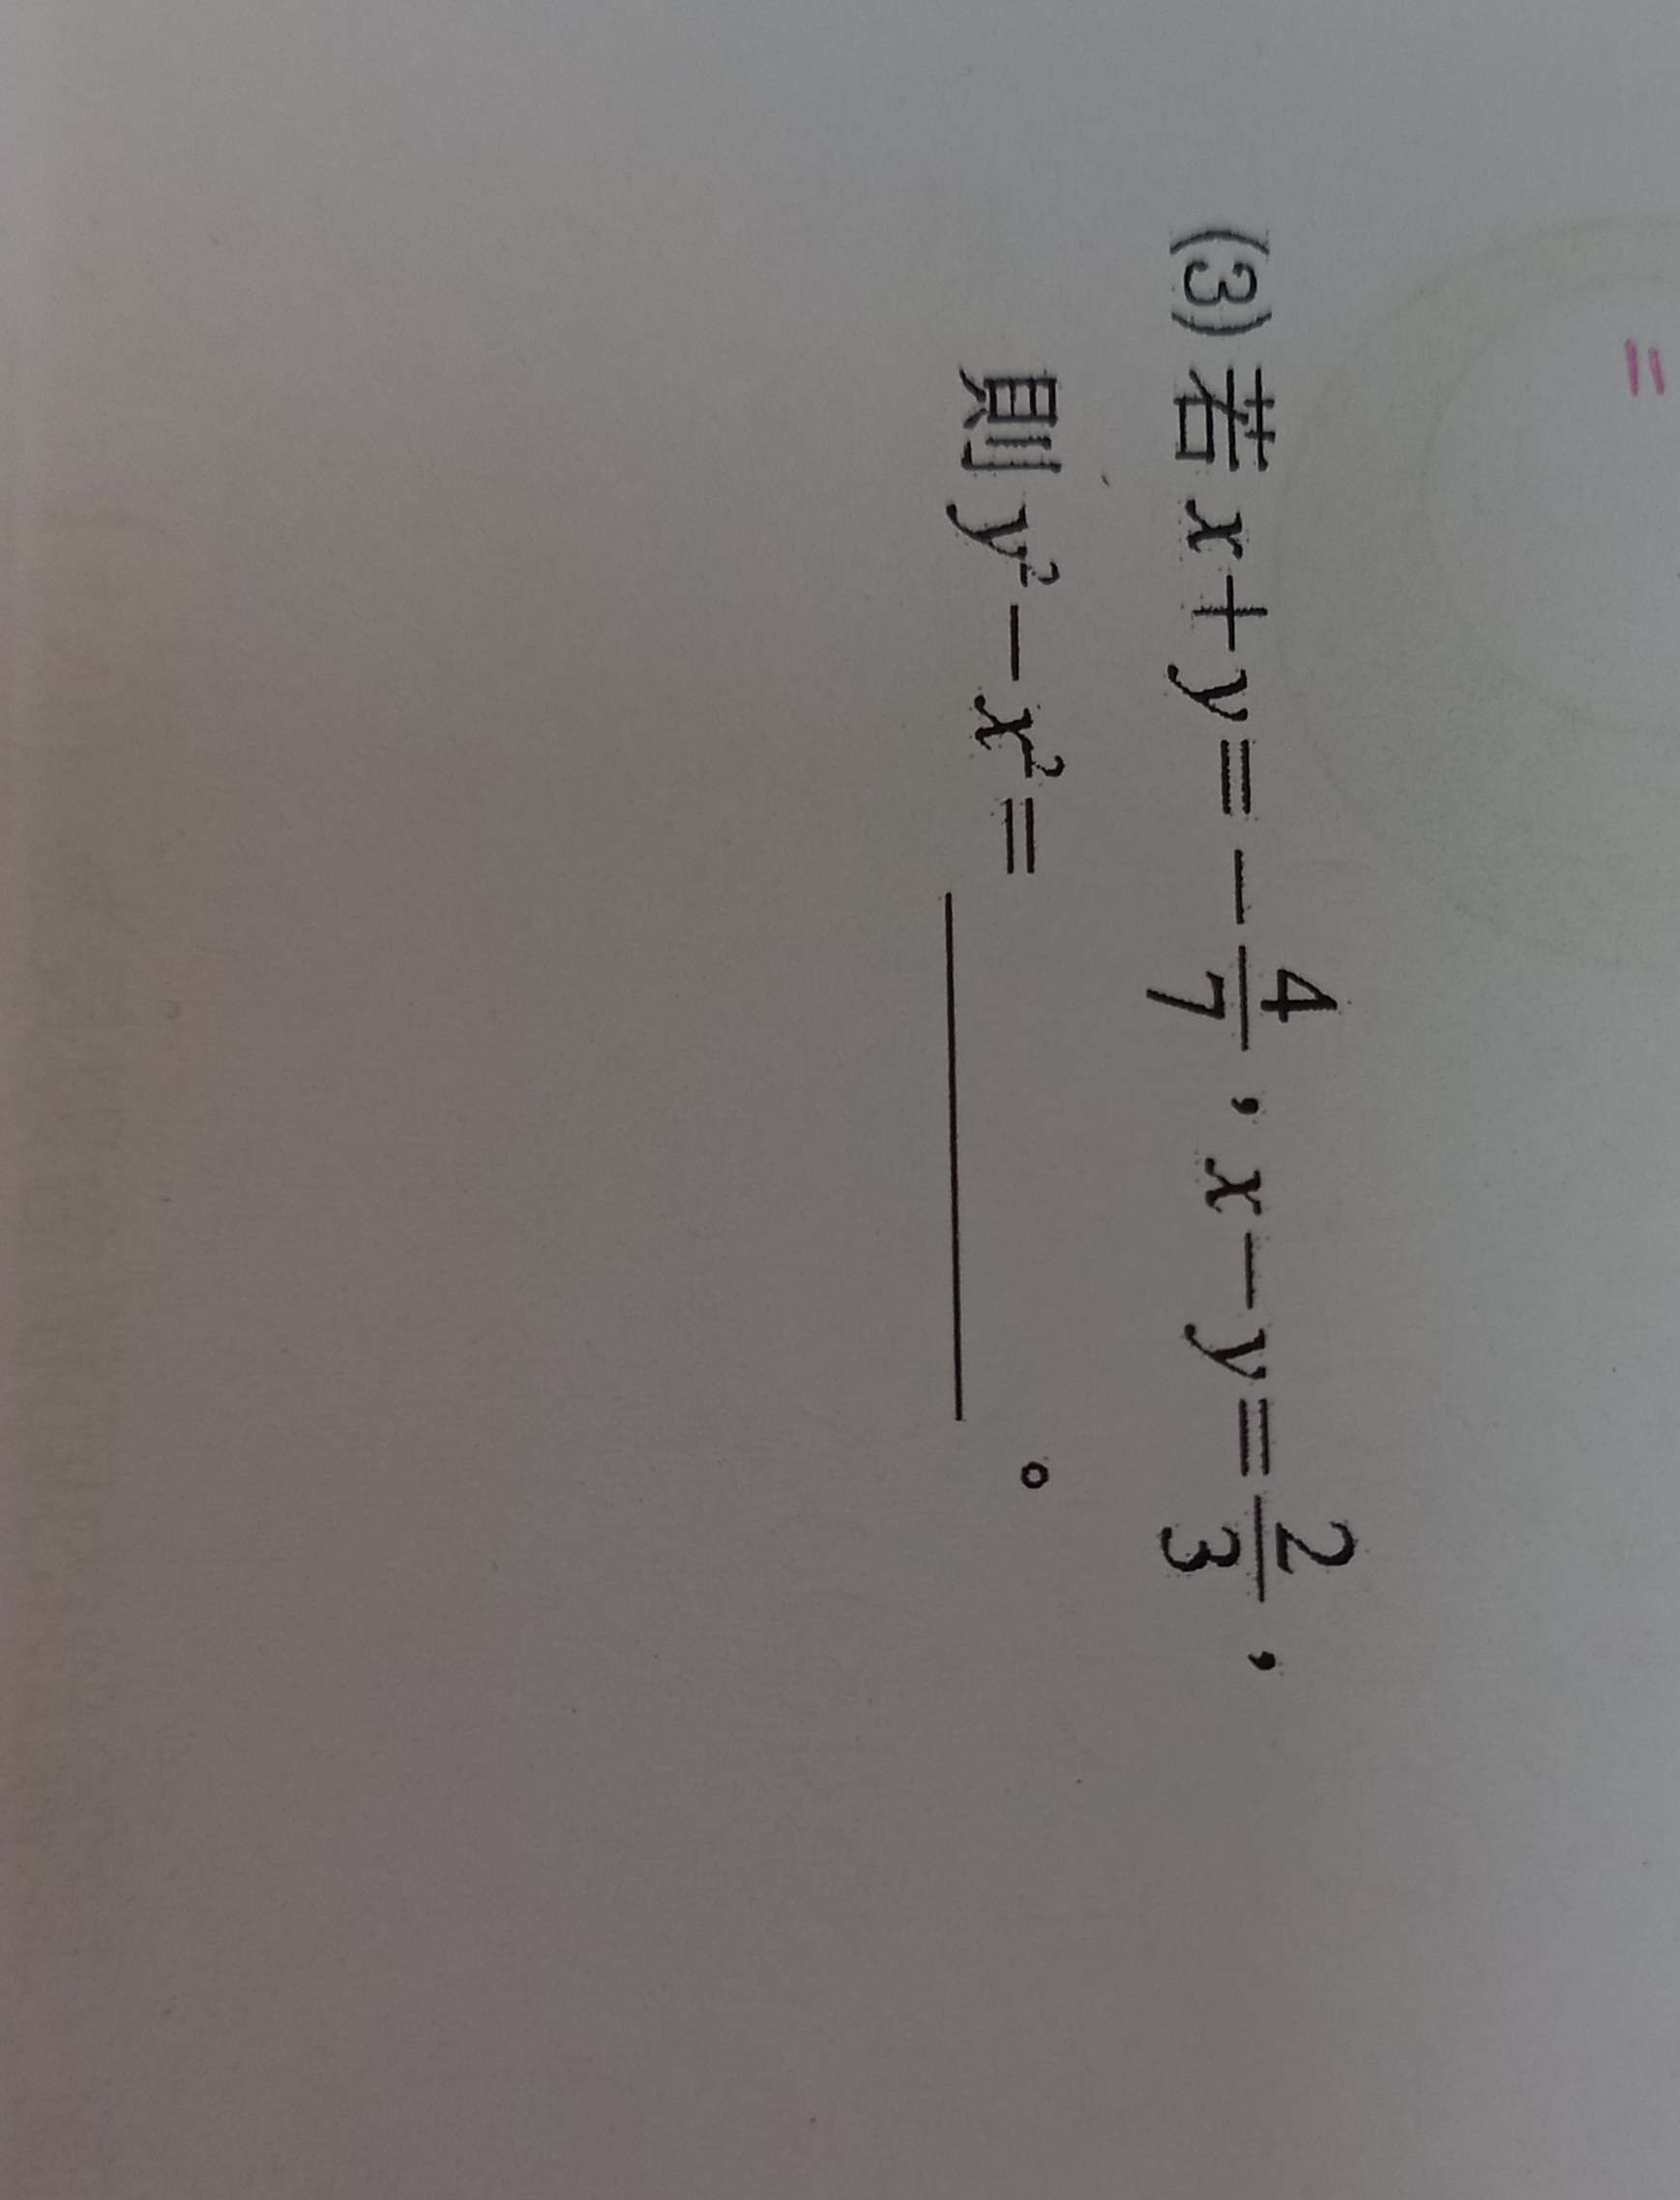 =
(3) 若 x + y = - 4/7 , x - y = 2/3 ,
則 y² - x² = ________ 。